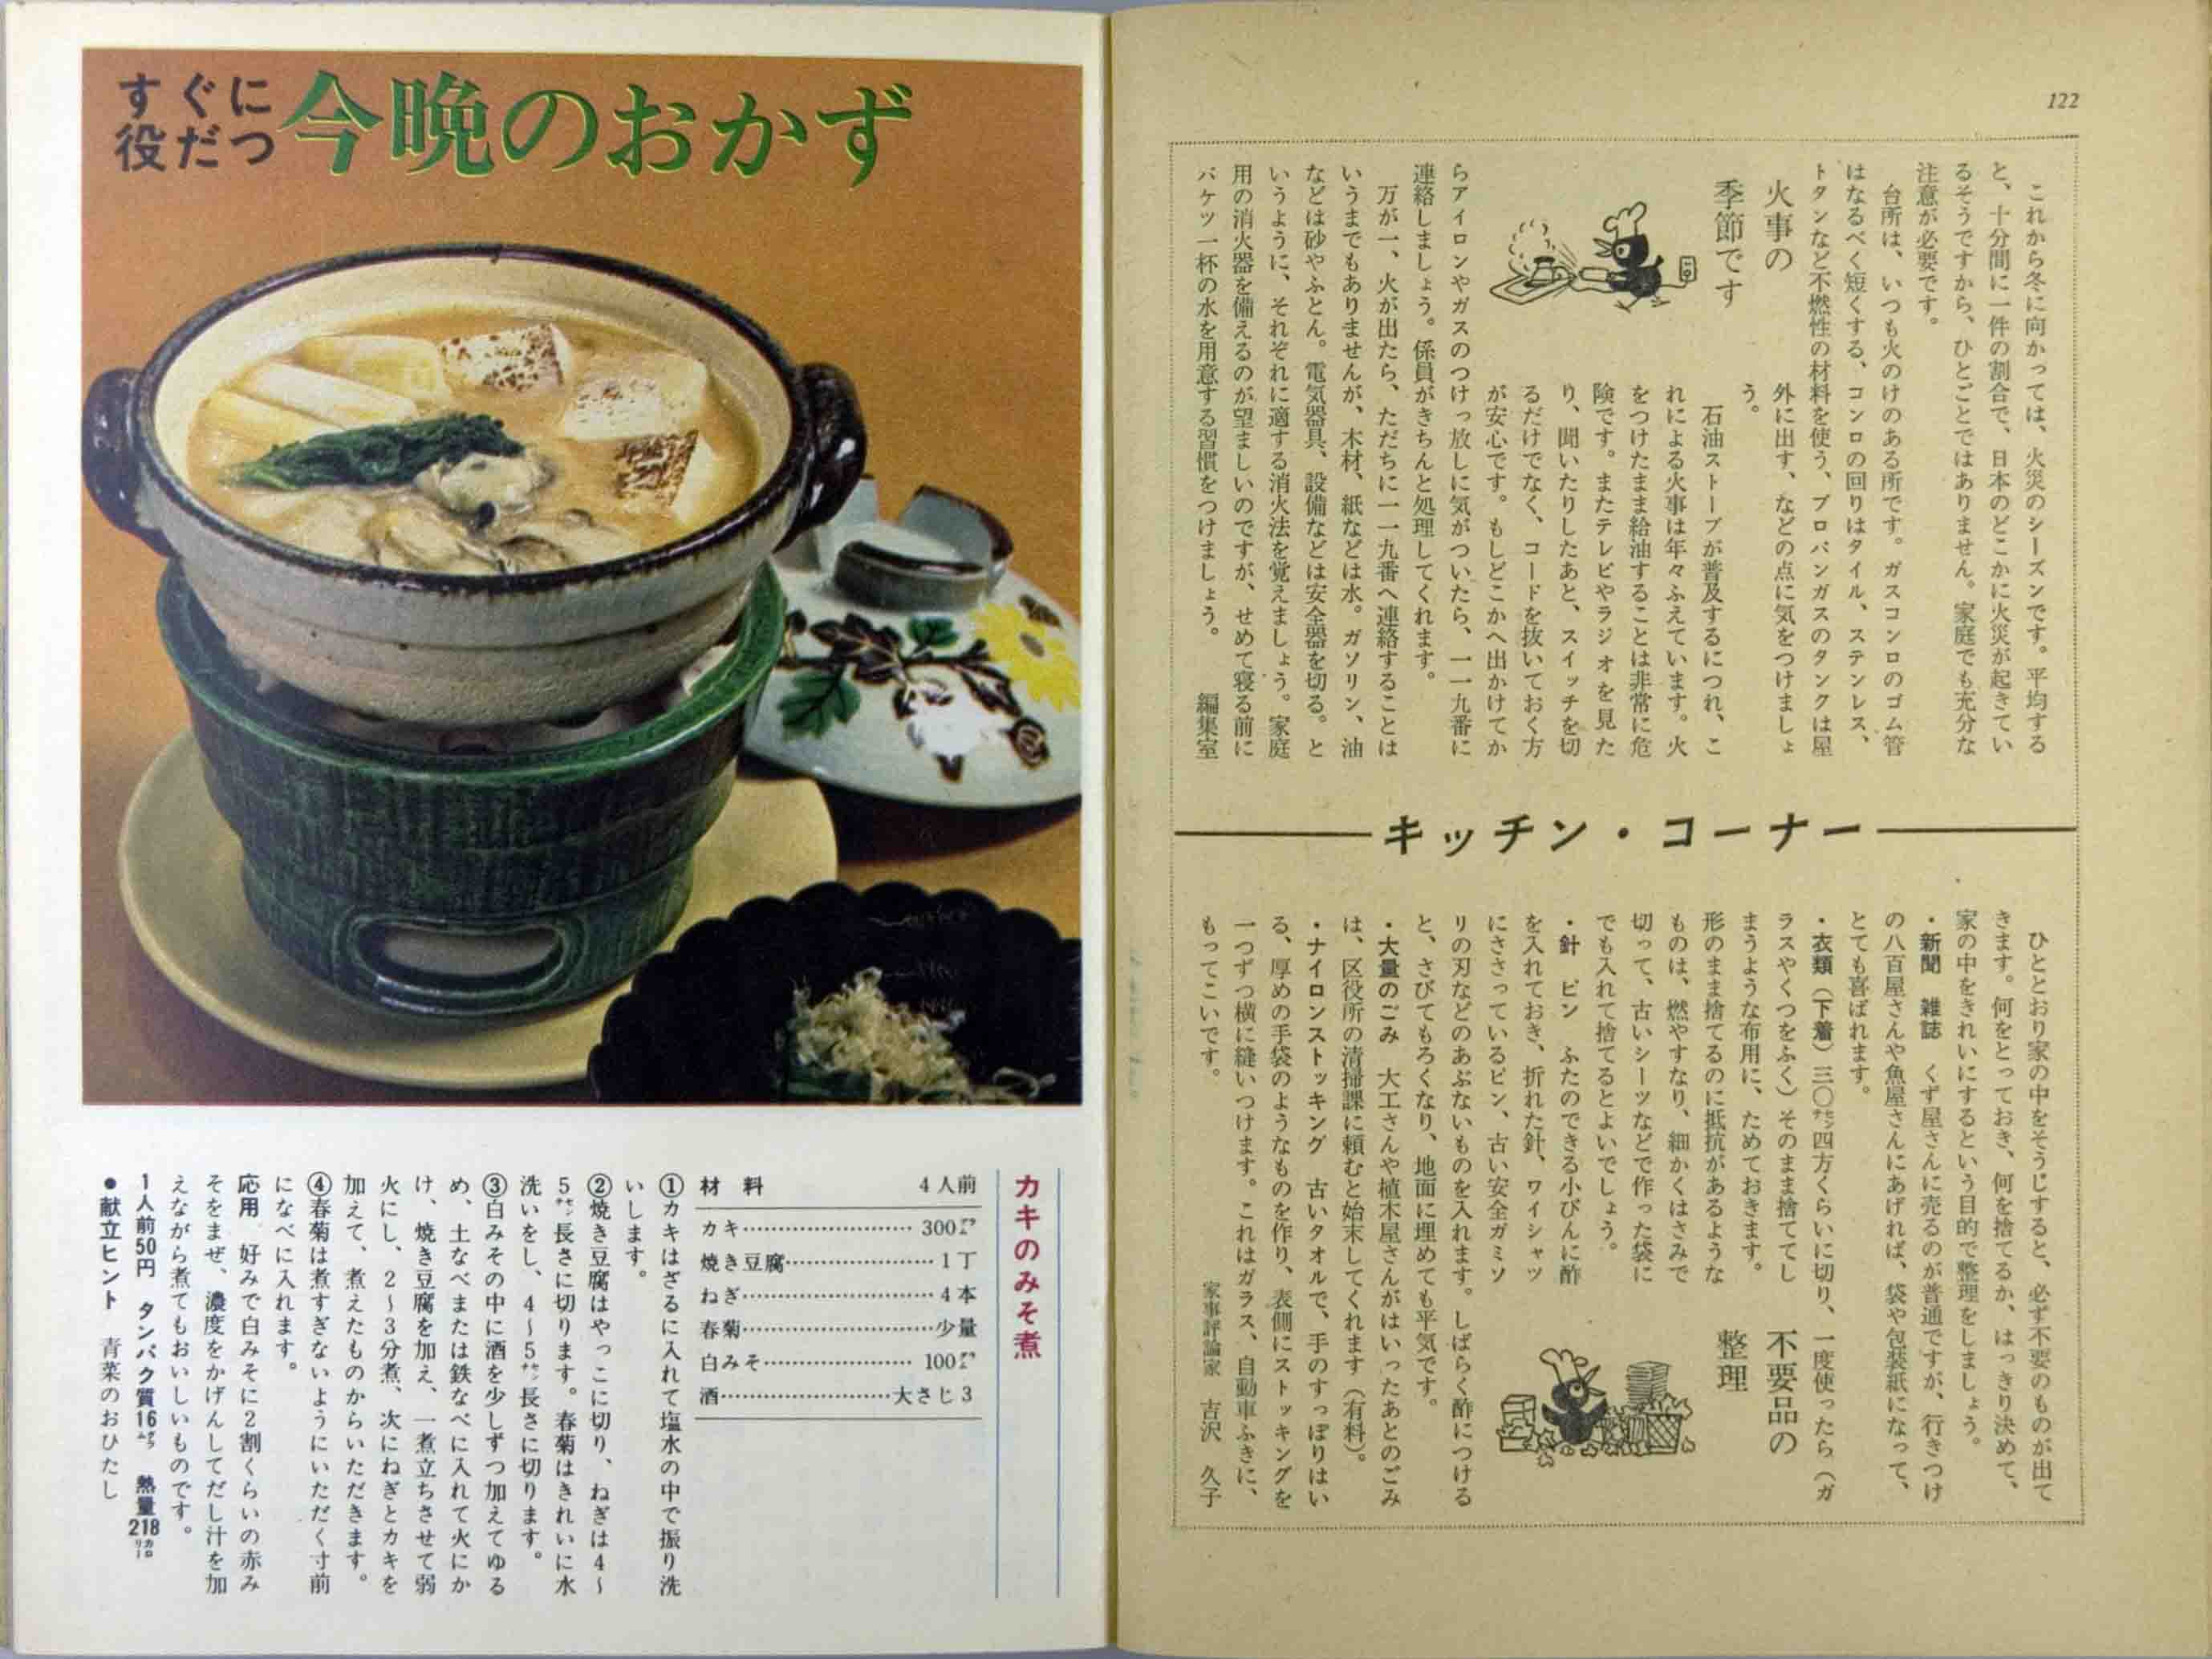 122
火事の
季節です
これから冬に向かっては、火災のシーズンです。平均する
と、十分間に一件の割合で、日本のどこかに火災が起きてい
るそうですから、ひとごとではありません。家庭でも充分な
注意が必要です。
台所は、いつも火のけのある所です。ガスコンロのゴム管
はなるべく短くする、コンロの回りはタイル、ステンレス、
トタンなど不燃性の材料を使う、プロパンガスのタンクは屋
外に出す、などの点に気をつけましょ
う。
石油ストーブが普及するにつれ、こ
れによる火事は年々ふえています。火
をつけたまま給油することは非常に危
険です。またテレビやラジオを見た
り、聞いたりしたあと、スイッチを切
るだけでなく、コードを抜いておく方
が安心です。もしどこかへ出かけてか
らアイロンやガスのつけっ放しに気がついたら、一一九番に
連絡しましょう。係員がきちんと処理してくれます。
万が一、火が出たら、ただちに一一九番へ連絡することは
いうまでもありませんが、木材、紙などは水。ガソリン、油
などは砂やふとん。電気器具、設備などは安全器を切る。と
いうように、それぞれに適する消火法を覚えましょう。家庭
用の消火器を備えるのが望ましいのですが、せめて寝る前に
バケツ一杯の水を用意する習慣をつけましょう。 編集室
キッチン・コーナー
不要品の
整理
ひととおり家の中をそうじすると、必ず不要のものが出て
きます。何をとっておき、何を捨てるか、はっきり決めて、
家の中をきれいにするという目的で整理をしましょう。
・新聞 雑誌 くず屋さんに売るのが普通ですが、行きつけ
の八百屋さんや魚屋さんにあげれば、袋や包装紙になって、
とても喜ばれます。
・衣類（下着）三〇センチ四方くらいに切り、一度使ったら（ガ
ラスやくつをふく）そのまま捨ててし
まうような布用に、ためておきます。
形のまま捨てるのに抵抗があるような
ものは、燃やすなり、細かくはさみで
切って、古いシーツなどで作った袋に
でも入れて捨てるとよいでしょう。
・針 ピン ふたのできる小びんに酢
を入れておき、折れた針、ワイシャツ
にささっているピン、古い安全ガミソ
リの刃などのあぶないものを入れます。しばらく酢につける
と、さびてもろくなり、地面に埋めても平気です。
・大量のごみ 大工さんや植木屋さんがはいったあとのごみ
は、区役所の清掃課に頼むと始末してくれます（有料）。
・ナイロンストッキング 古いタオルで、手のすっぽりはい
る、厚めの手袋のようなものを作り、表側にストッキングを
一つずつ横に縫いつけます。これはガラス、自動車ふきに、
もってこいです。 家事評論家 吉沢 久子
すぐに
役だつ
今晩のおかず
カキのみそ煮
材 料 4人前
カキ……………………300グラム
焼き豆腐…………………1丁
ねぎ………………………4本
春菊………………………少量
白みそ…………………100グラム
酒……………………大さじ3
①カキはざるに入れて塩水の中で振り洗
いします。
②焼き豆腐はやっこに切り、ねぎは4～
5センチ長さに切ります。春菊はきれいに水
洗いをし、4～5センチ長さに切ります。
③白みその中に酒を少しずつ加えてゆる
め、土なべまたは鉄なべに入れて火にか
け、焼き豆腐を加え、一煮立ちさせて弱
火にし、2～3分煮、次にねぎとカキを
加えて、煮えたものからいただきます。
④春菊は煮すぎないようにいただく寸前
になべに入れます。
応用 好みで白みそに2割くらいの赤み
そをまぜ、濃度をかげんしてだし汁を加
えながら煮てもおいしいものです。
1人前50円 タンパク質16グラム 熱量218カロリー
●献立ヒント 青菜のおひたし